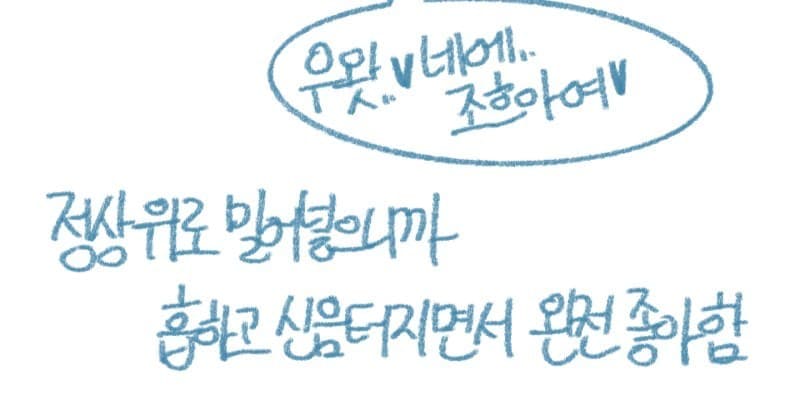 우왓..♥네에..
조흐아여♥
정상위로 밀어넣으니까
흡하고 신음터지면서 완전 좋아함